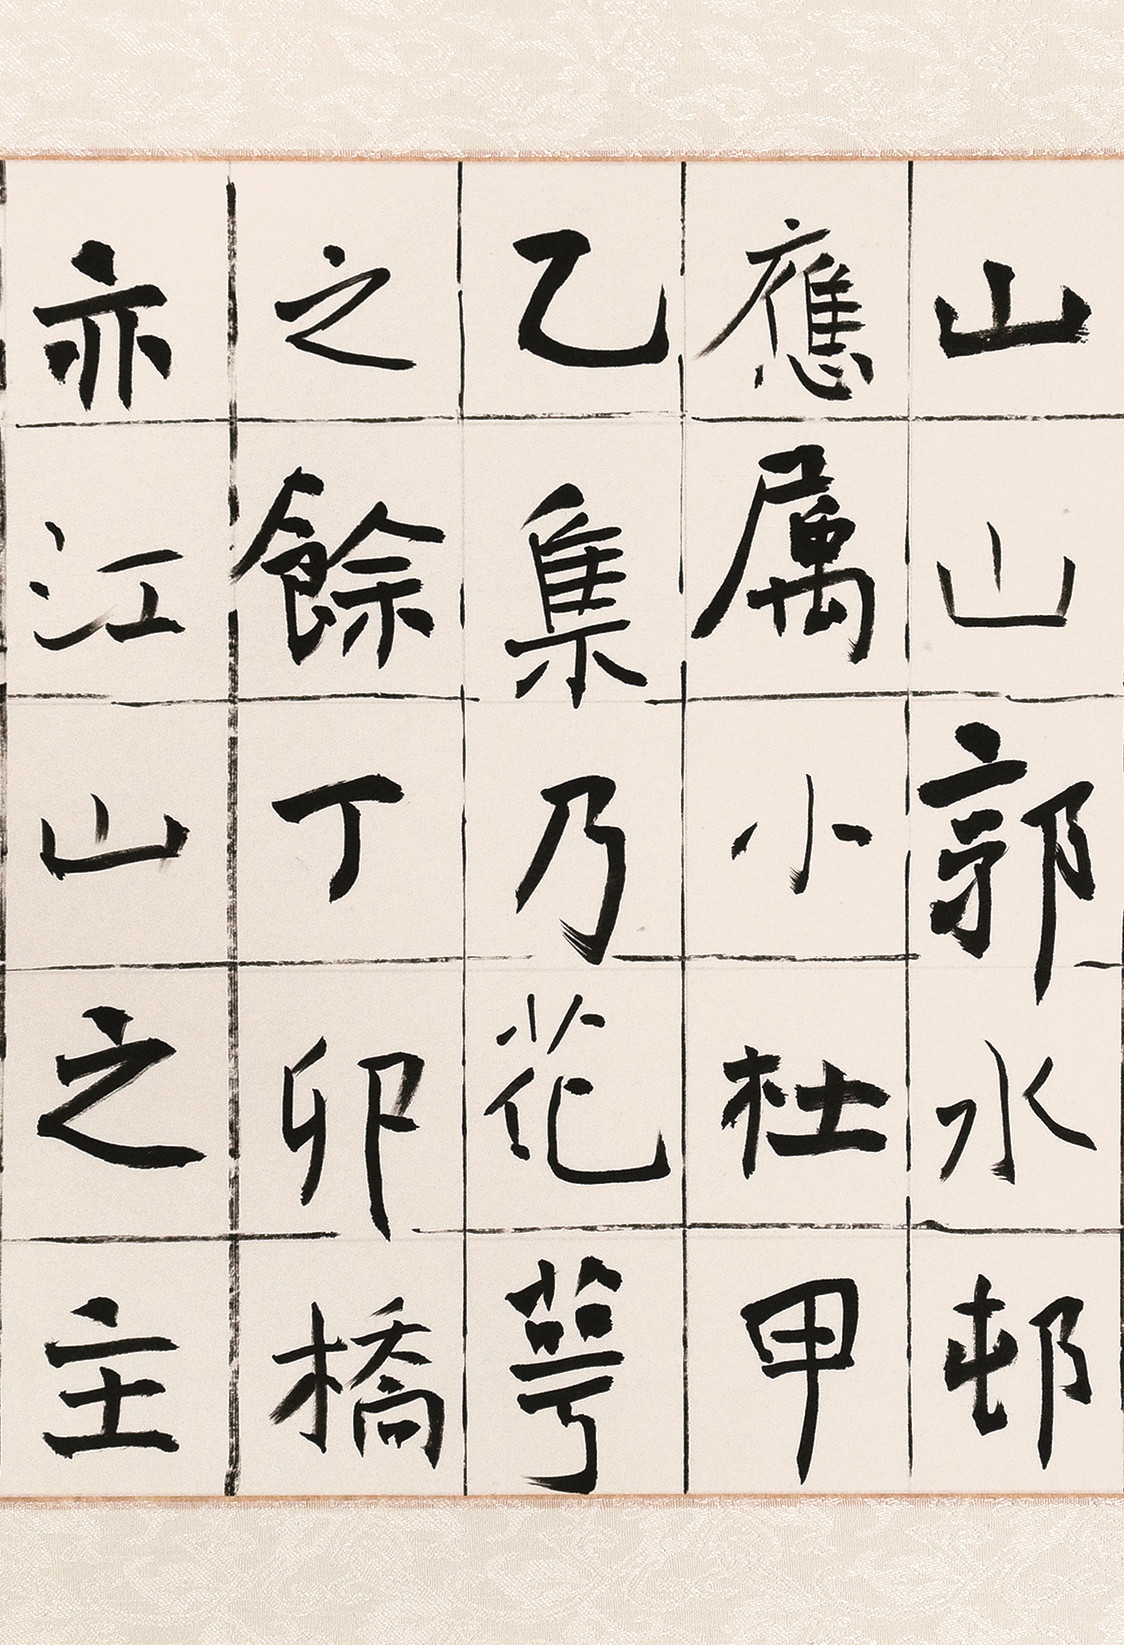 山山郭水邨
應属小杜甲
乙集乃花萼
之餘丁卯橋
亦江山之主